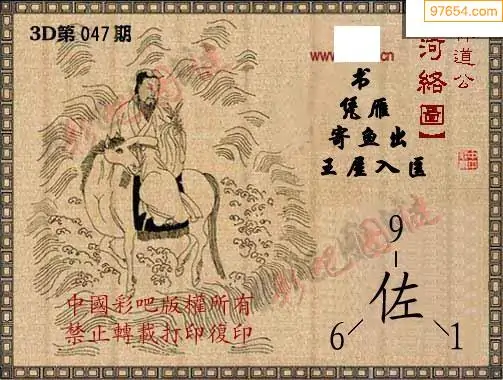 97654.com
3D第047期
www.
.cn
道公
河络圖】
书
凭雁
寄鱼出
王屋入匡
9
佐
6
1
中國彩吧版權所有
禁止轉載打印復印